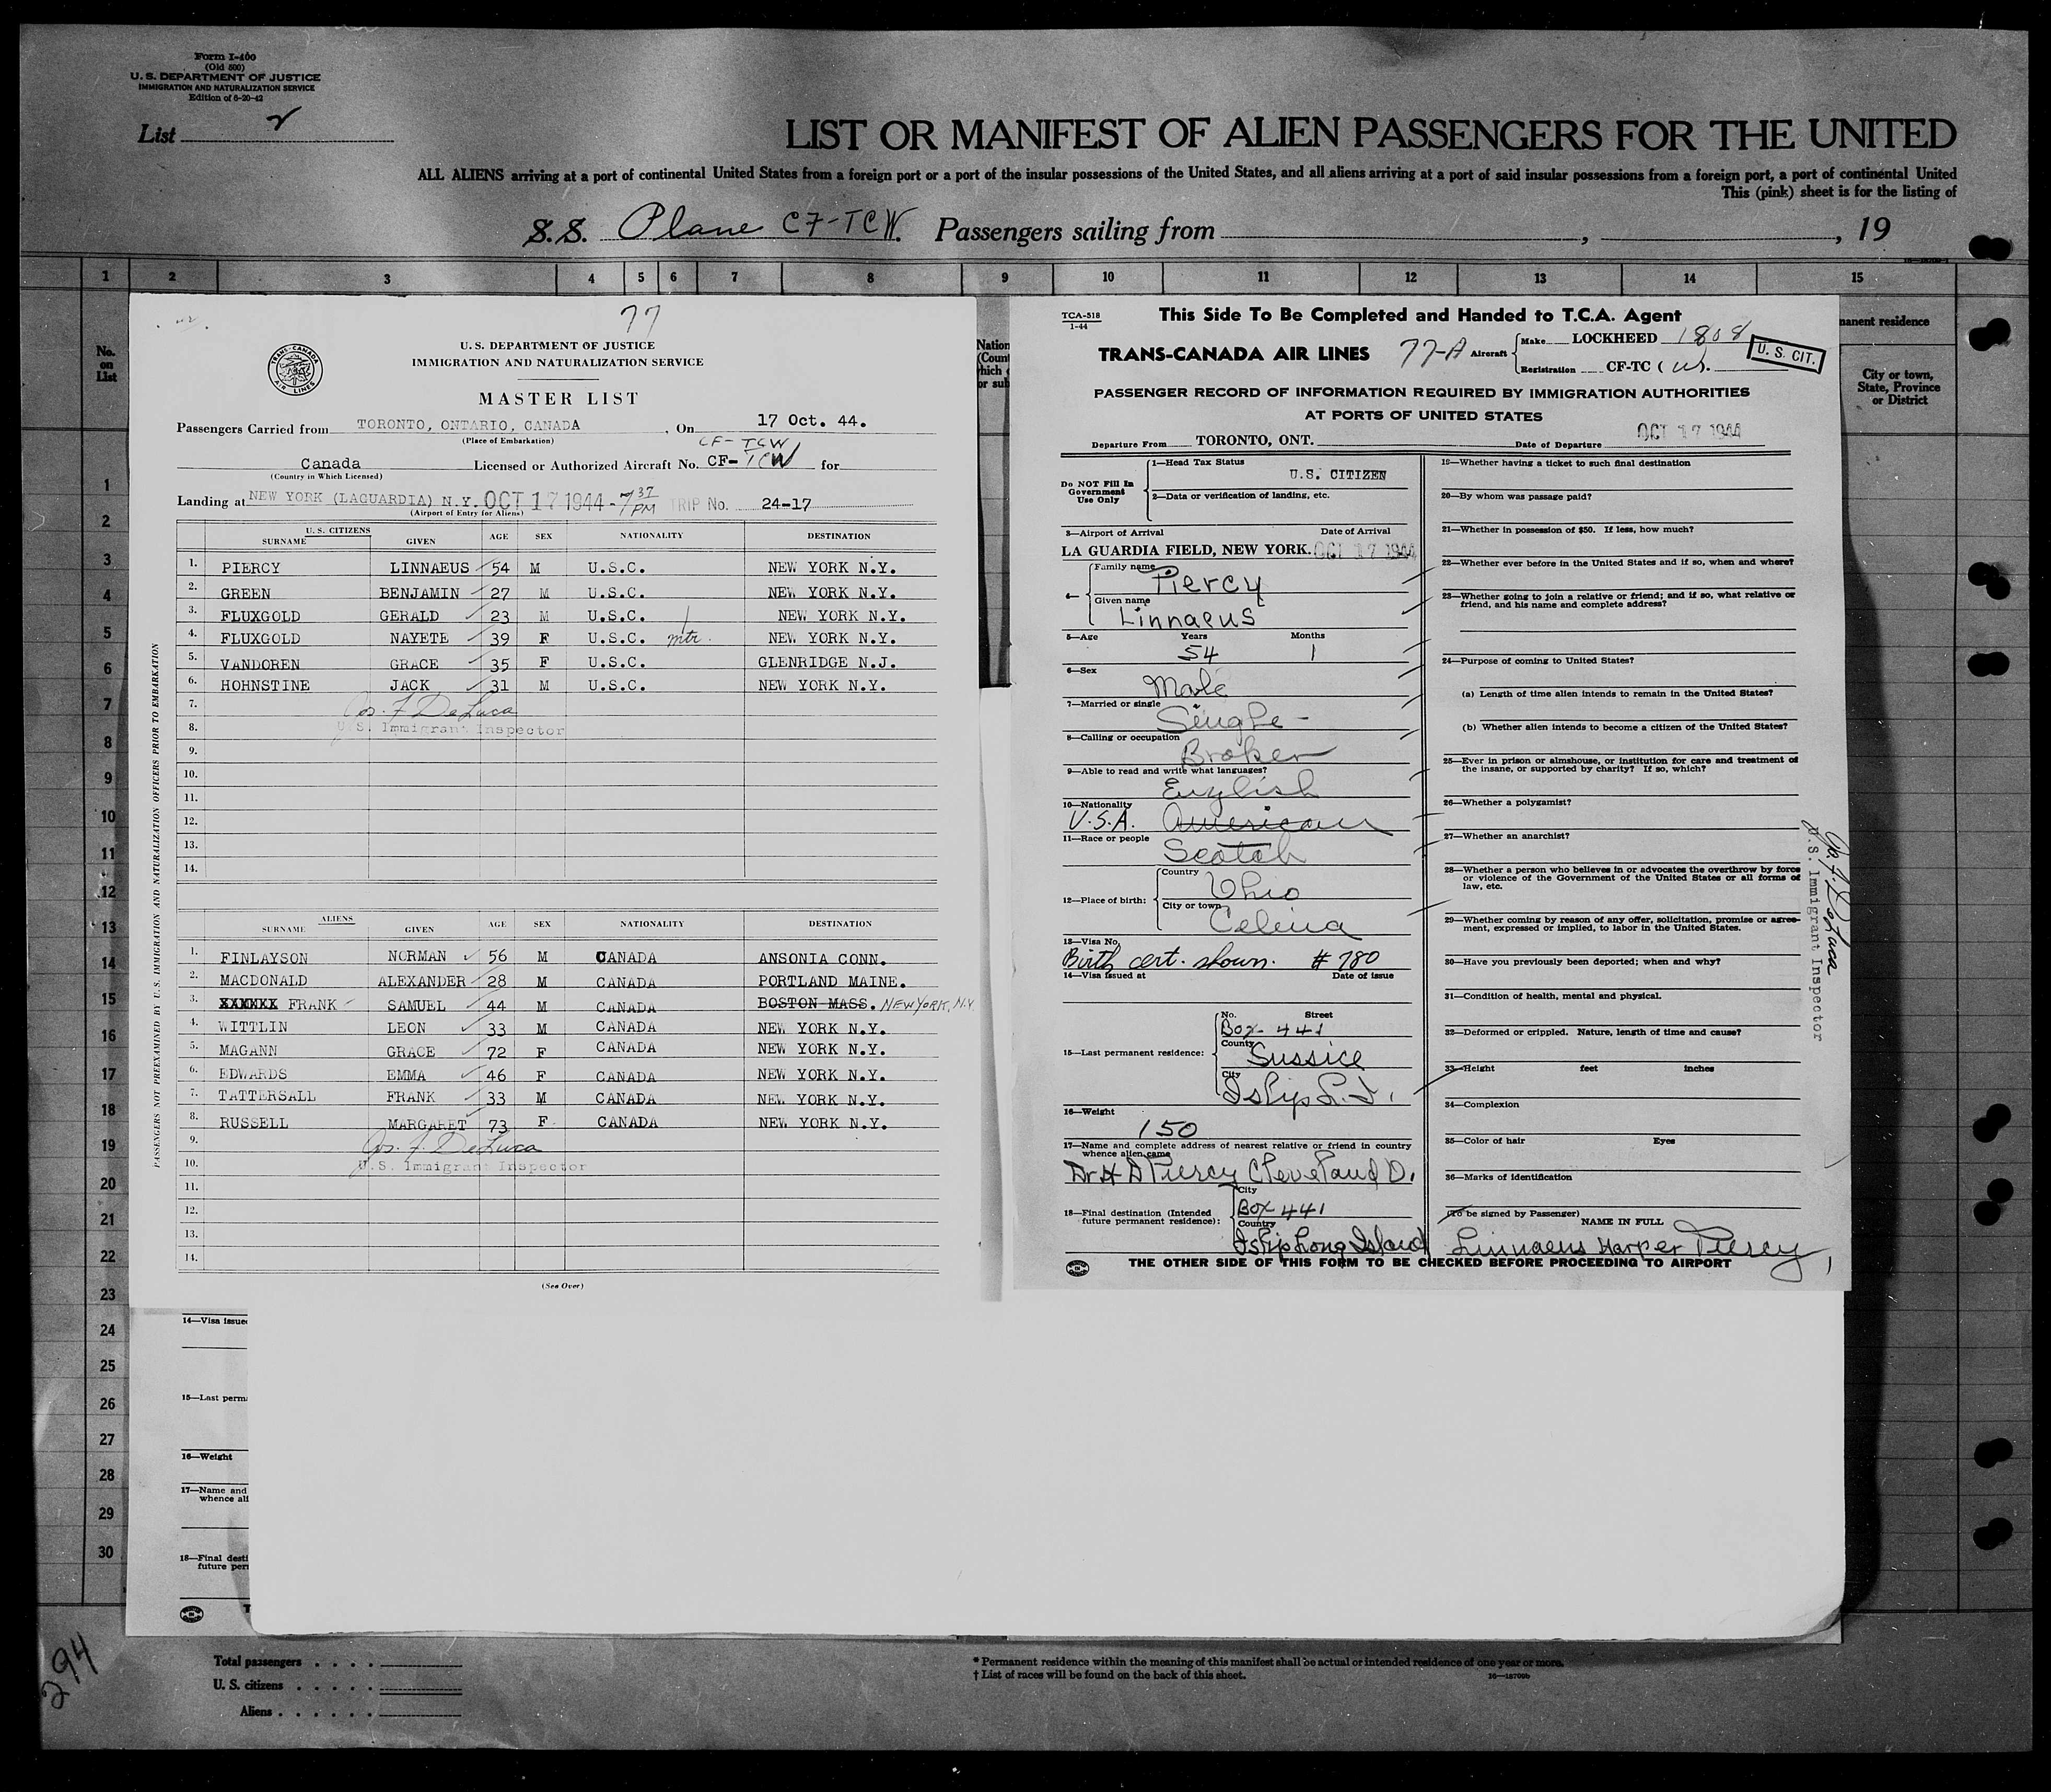 Form I-400
(Old 500)
U. S. DEPARTMENT OF JUSTICE
IMMIGRATION AND NATURALIZATION SERVICE
Edition of 6-20-42
List 2
LIST OR MANIFEST OF ALIEN PASSENGERS FOR THE UNITED
ALL ALIENS arriving at a port of continental United States from a foreign port or a port of the insular possessions of the United States, and all aliens arriving at a port of said insular possessions from a foreign port, a port of continental United
This (pink) sheet is for the listing of
S.S. Plane CF-TCW. Passengers sailing from , , 19
1 2 3 4 5 6 7 8 9 10 11 12 13 14 15
No. on List
1
2
3
4
5
6
7
8
9
10
11
12
13
14
15
16
17
18
19
20
21
22
23
24
25
26
27
28
29
30
77
TRANS-CANADA AIR LINES
U. S. DEPARTMENT OF JUSTICE
IMMIGRATION AND NATURALIZATION SERVICE
MASTER LIST
Passengers Carried from TORONTO, ONTARIO, CANADA , On 17 Oct. 44.
(Place of Embarkation)
CF-TCW
Canada Licensed or Authorized Aircraft No. CF-TCW for
(Country in Which Licensed)
Landing at NEW YORK (LAGUARDIA) N.Y. OCT 17 1944 - 7 37 PM TRIP No. 24-17
(Airport of Entry for Aliens)
U.S. CITIZENS
SURNAME GIVEN AGE SEX NATIONALITY DESTINATION
1. PIERCY LINNAEUS 54 M U.S.C. NEW YORK N.Y.
2. GREEN BENJAMIN 27 M U.S.C. NEW YORK N.Y.
3. FLUXGOLD GERALD 23 M U.S.C. NEW YORK N.Y.
4. FLUXGOLD NAYETE 39 F U.S.C. mtr. NEW YORK N.Y.
5. VANDOREN GRACE 35 F U.S.C. GLENRIDGE N.J.
6. HOHNSTINE JACK 31 M U.S.C. NEW YORK N.Y.
7. Jos. F. DeLuca
8. U.S. Immigrant Inspector
9.
10.
11.
12.
13.
14.
ALIENS
SURNAME GIVEN AGE SEX NATIONALITY DESTINATION
1. FINLAYSON NORMAN 56 M CANADA ANSONIA CONN.
2. MACDONALD ALEXANDER 28 M CANADA PORTLAND MAINE.
3. XXXXXX FRANK SAMUEL 44 M CANADA BOSTON MASS. NEW YORK, N.Y.
4. WITTLIN LEON 33 M CANADA NEW YORK N.Y.
5. MAGANN GRACE 72 F CANADA NEW YORK N.Y.
6. EDWARDS EMMA 46 F CANADA NEW YORK N.Y.
7. TATTERSALL FRANK 33 M CANADA NEW YORK N.Y.
8. RUSSELL MARGARET 73 F CANADA NEW YORK N.Y.
9. Jos. F. DeLuca
10. U.S. Immigrant Inspector
11.
12.
13.
14.
(See Over)
PASSENGERS NOT PREEXAMINED BY U.S. IMMIGRATION AND NATURALIZATION OFFICERS PRIOR TO EMBARKATION
14—Visa issued
15—Last perm
16—Weight
17—Name and
whence ali
18—Final desti
future per
Nation
(Count
which
or sub
TCA-518
1-44
This Side To Be Completed and Handed to T.C.A. Agent
TRANS-CANADA AIR LINES 77-A Aircraft Make LOCKHEED 1808
Registration CF-TC (W).
U. S. CIT.
PASSENGER RECORD OF INFORMATION REQUIRED BY IMMIGRATION AUTHORITIES
AT PORTS OF UNITED STATES
Departure From TORONTO, ONT. Date of Departure OCT 17 1944
Do NOT Fill In Government Use Only
1—Head Tax Status U.S. CITIZEN
2—Data or verification of landing, etc.
3—Airport of Arrival Date of Arrival
LA GUARDIA FIELD, NEW YORK. OCT 17 1944
4— Family name Piercy
Given name Linnaeus
5—Age Years 54 Months 1
6—Sex Male
7—Married or single Single -
8—Calling or occupation Broker
9—Able to read and write what languages? English
10—Nationality U.S.A. American
11—Race or people Scotch
12—Place of birth: Country Ohio
City or town Celina
13—Visa No. Birth cert. shown. # 780
14—Visa issued at Date of issue
15—Last permanent residence: No. Street Box 441
County Sussice
City Islip L.I.
16—Weight 150
17—Name and complete address of nearest relative or friend in country
whence alien came
Dr H D Piercy Cleveland O.
18—Final destination (Intended future permanent residence): City Box 441
Country Islip Long Island
19—Whether having a ticket to such final destination
20—By whom was passage paid?
21—Whether in possession of $50. If less, how much?
22—Whether ever before in the United States and if so, when and where?
23—Whether going to join a relative or friend; and if so, what relative or
friend, and his name and complete address?
24—Purpose of coming to United States?
(a) Length of time alien intends to remain in the United States?
(b) Whether alien intends to become a citizen of the United States?
25—Ever in prison or almshouse, or institution for care and treatment of
the insane, or supported by charity? If so, which?
26—Whether a polygamist?
27—Whether an anarchist?
28—Whether a person who believes in or advocates the overthrow by force
or violence of the Government of the United States or all forms of
law, etc.
29—Whether coming by reason of any offer, solicitation, promise or agree-
ment, expressed or implied, to labor in the United States.
30—Have you previously been deported; when and why?
31—Condition of health, mental and physical.
32—Deformed or crippled. Nature, length of time and cause?
33—Height feet inches
34—Complexion
35—Color of hair Eyes
36—Marks of identification
(To be signed by Passenger)
NAME IN FULL
Linnaeus Harper Piercy
THE OTHER SIDE OF THIS FORM TO BE CHECKED BEFORE PROCEEDING TO AIRPORT
Jos. F. DeLuca
U.S. Immigrant Inspector
manent residence
City or town, State, Province or District
294
Total passengers
U. S. citizens
Aliens
* Permanent residence within the meaning of this manifest shall be actual or intended residence of one year or more.
† List of races will be found on the back of this sheet.